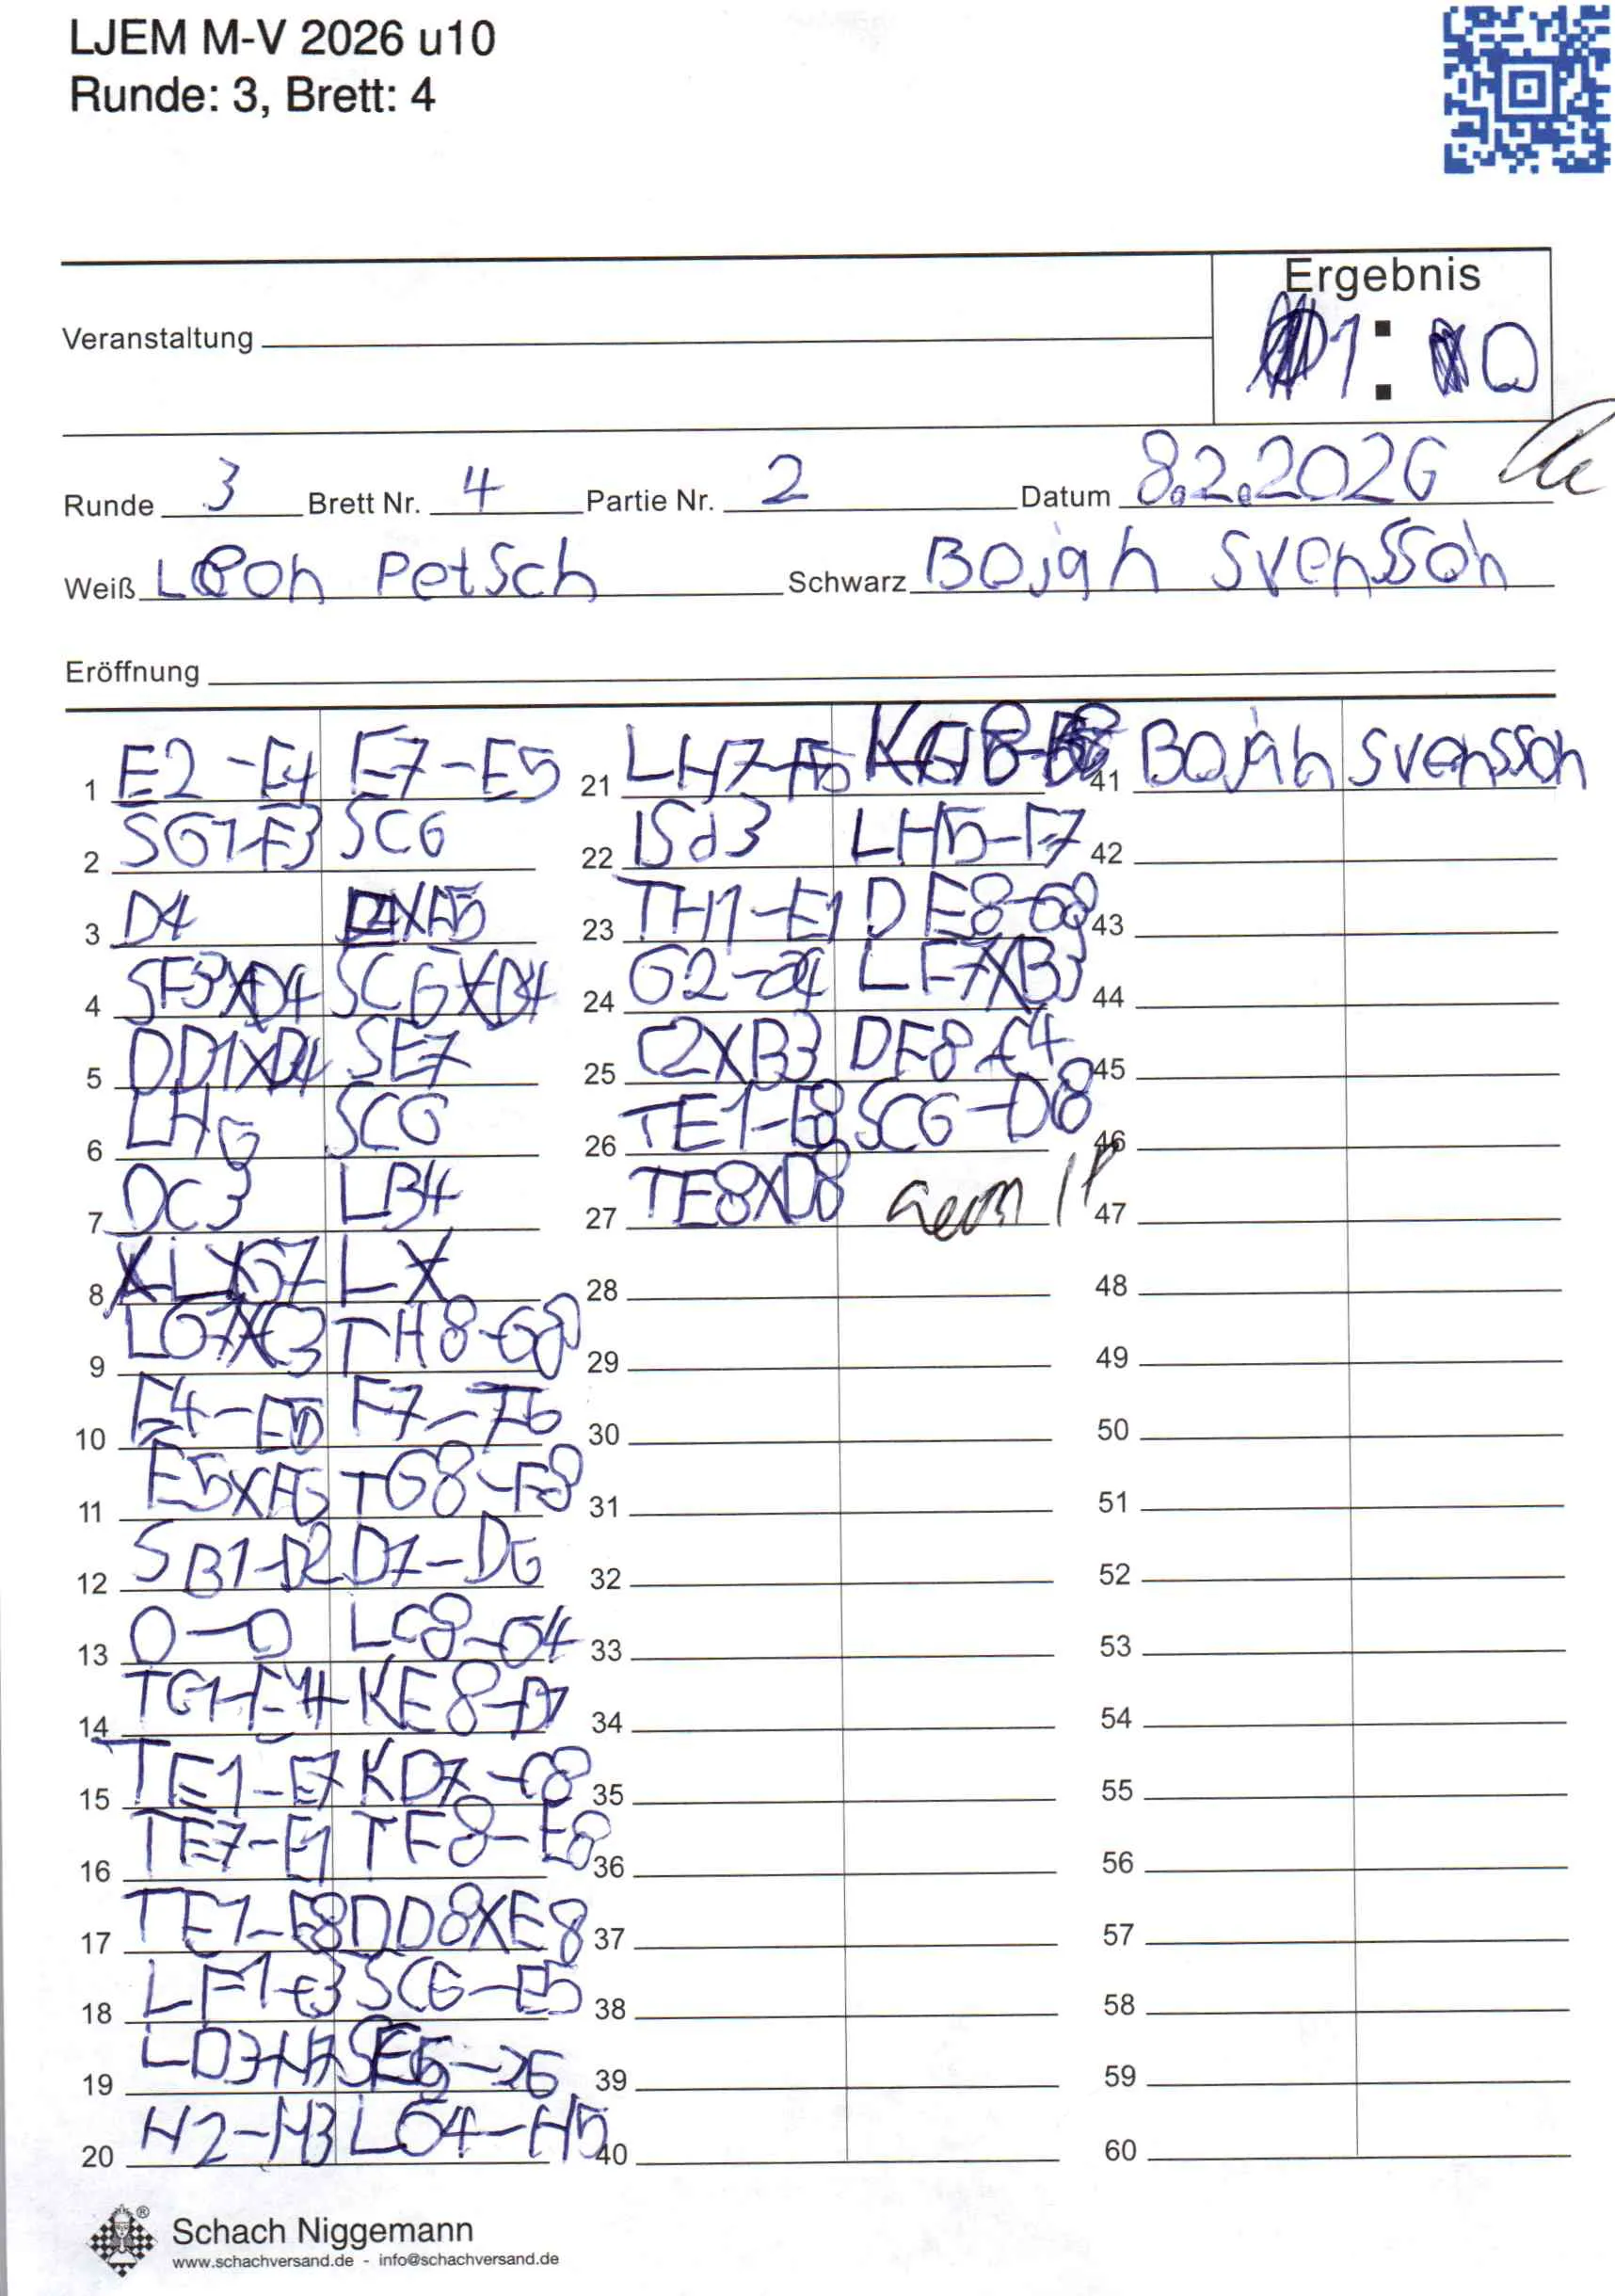 LJEM M-V 2026 u10
Runde: 3, Brett: 4
Ergebnis
1 : 0
Veranstaltung
Runde 3 Brett Nr. 4 Partie Nr. 2 Datum 8.2.2026
Weiß Leon Petsch Schwarz Bojan Svensson
Eröffnung
1 E2-E4 E7-E5
2 SG1-F3 SC6
3 D4
4 SF3XD4 SC6XD4
5 DD1XD4 SE7
6 LH6 SC6
7 DC3 LB4
8 LXG7 LX
9 LG7XC3 TH8-G8
10 E4-E5 F7-F6
11 E5XF6 TG8-F8
12 SB1-D2 D7-D6
13 0-0 LC8-G4
14 KE8-D7
15 TE1-E7 KD7-C8
16 TE7-E1 TF8-E8
17 TE1-E8 DD8XE8
18 SC6-E5
19 LD3-H7
20 H2-H3 LG4-H5
21
22 Sd3 LH5-F7
23 TH1-E1 DE8-G8
24 LF7XB3
25 C2XB3
26 TE1-E8 SC6-D8
27 TE8XD8
28
29
30
31
32
33
34
35
36
37
38
39
40
41 Bojan Svensson
42
43
44
45
46
47
48
49
50
51
52
53
54
55
56
57
58
59
60
Schach Niggemann
www.schachversand.de - info@schachversand.de